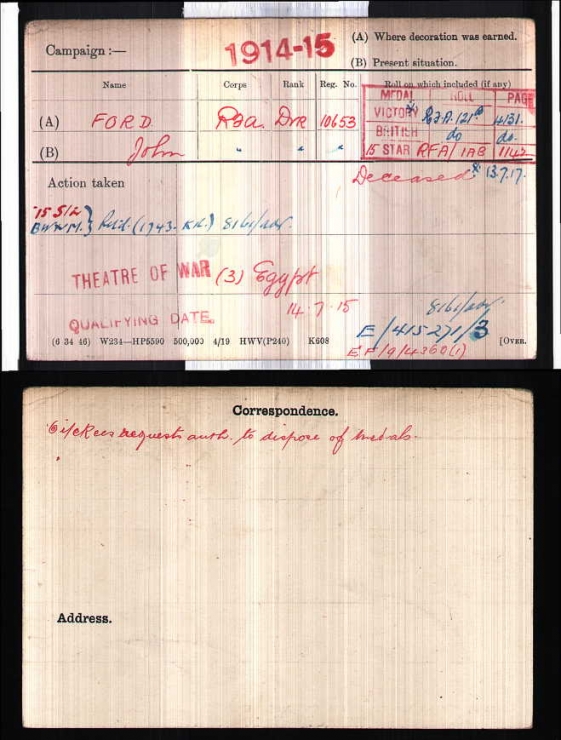 Campaign :—
1914-15
(A) Where decoration was earned.
(B) Present situation.
Name Corps Rank Reg. No. Roll on which included (if any)
MEDAL ROLL PAGE
(A) FORD R.F.A. Dvr 10653
VICTORY R.F.A. 121B 4131.
(B) John " " "
BRITISH do do.
15 STAR RFA/1AB 1142
Action taken
Deceased 13.7.17.
'15 S/L
THEATRE OF WAR (3) Egypt
14.7.15
QUALIFYING DATE.
E/415271/3
EF/9/4360(1)
(6 34 46) W234—HP5590 500,000 4/19 HWV(P240) K608 [OVER.
Correspondence.
O i/c Recs requests auth. to dispose of medals.
Address.